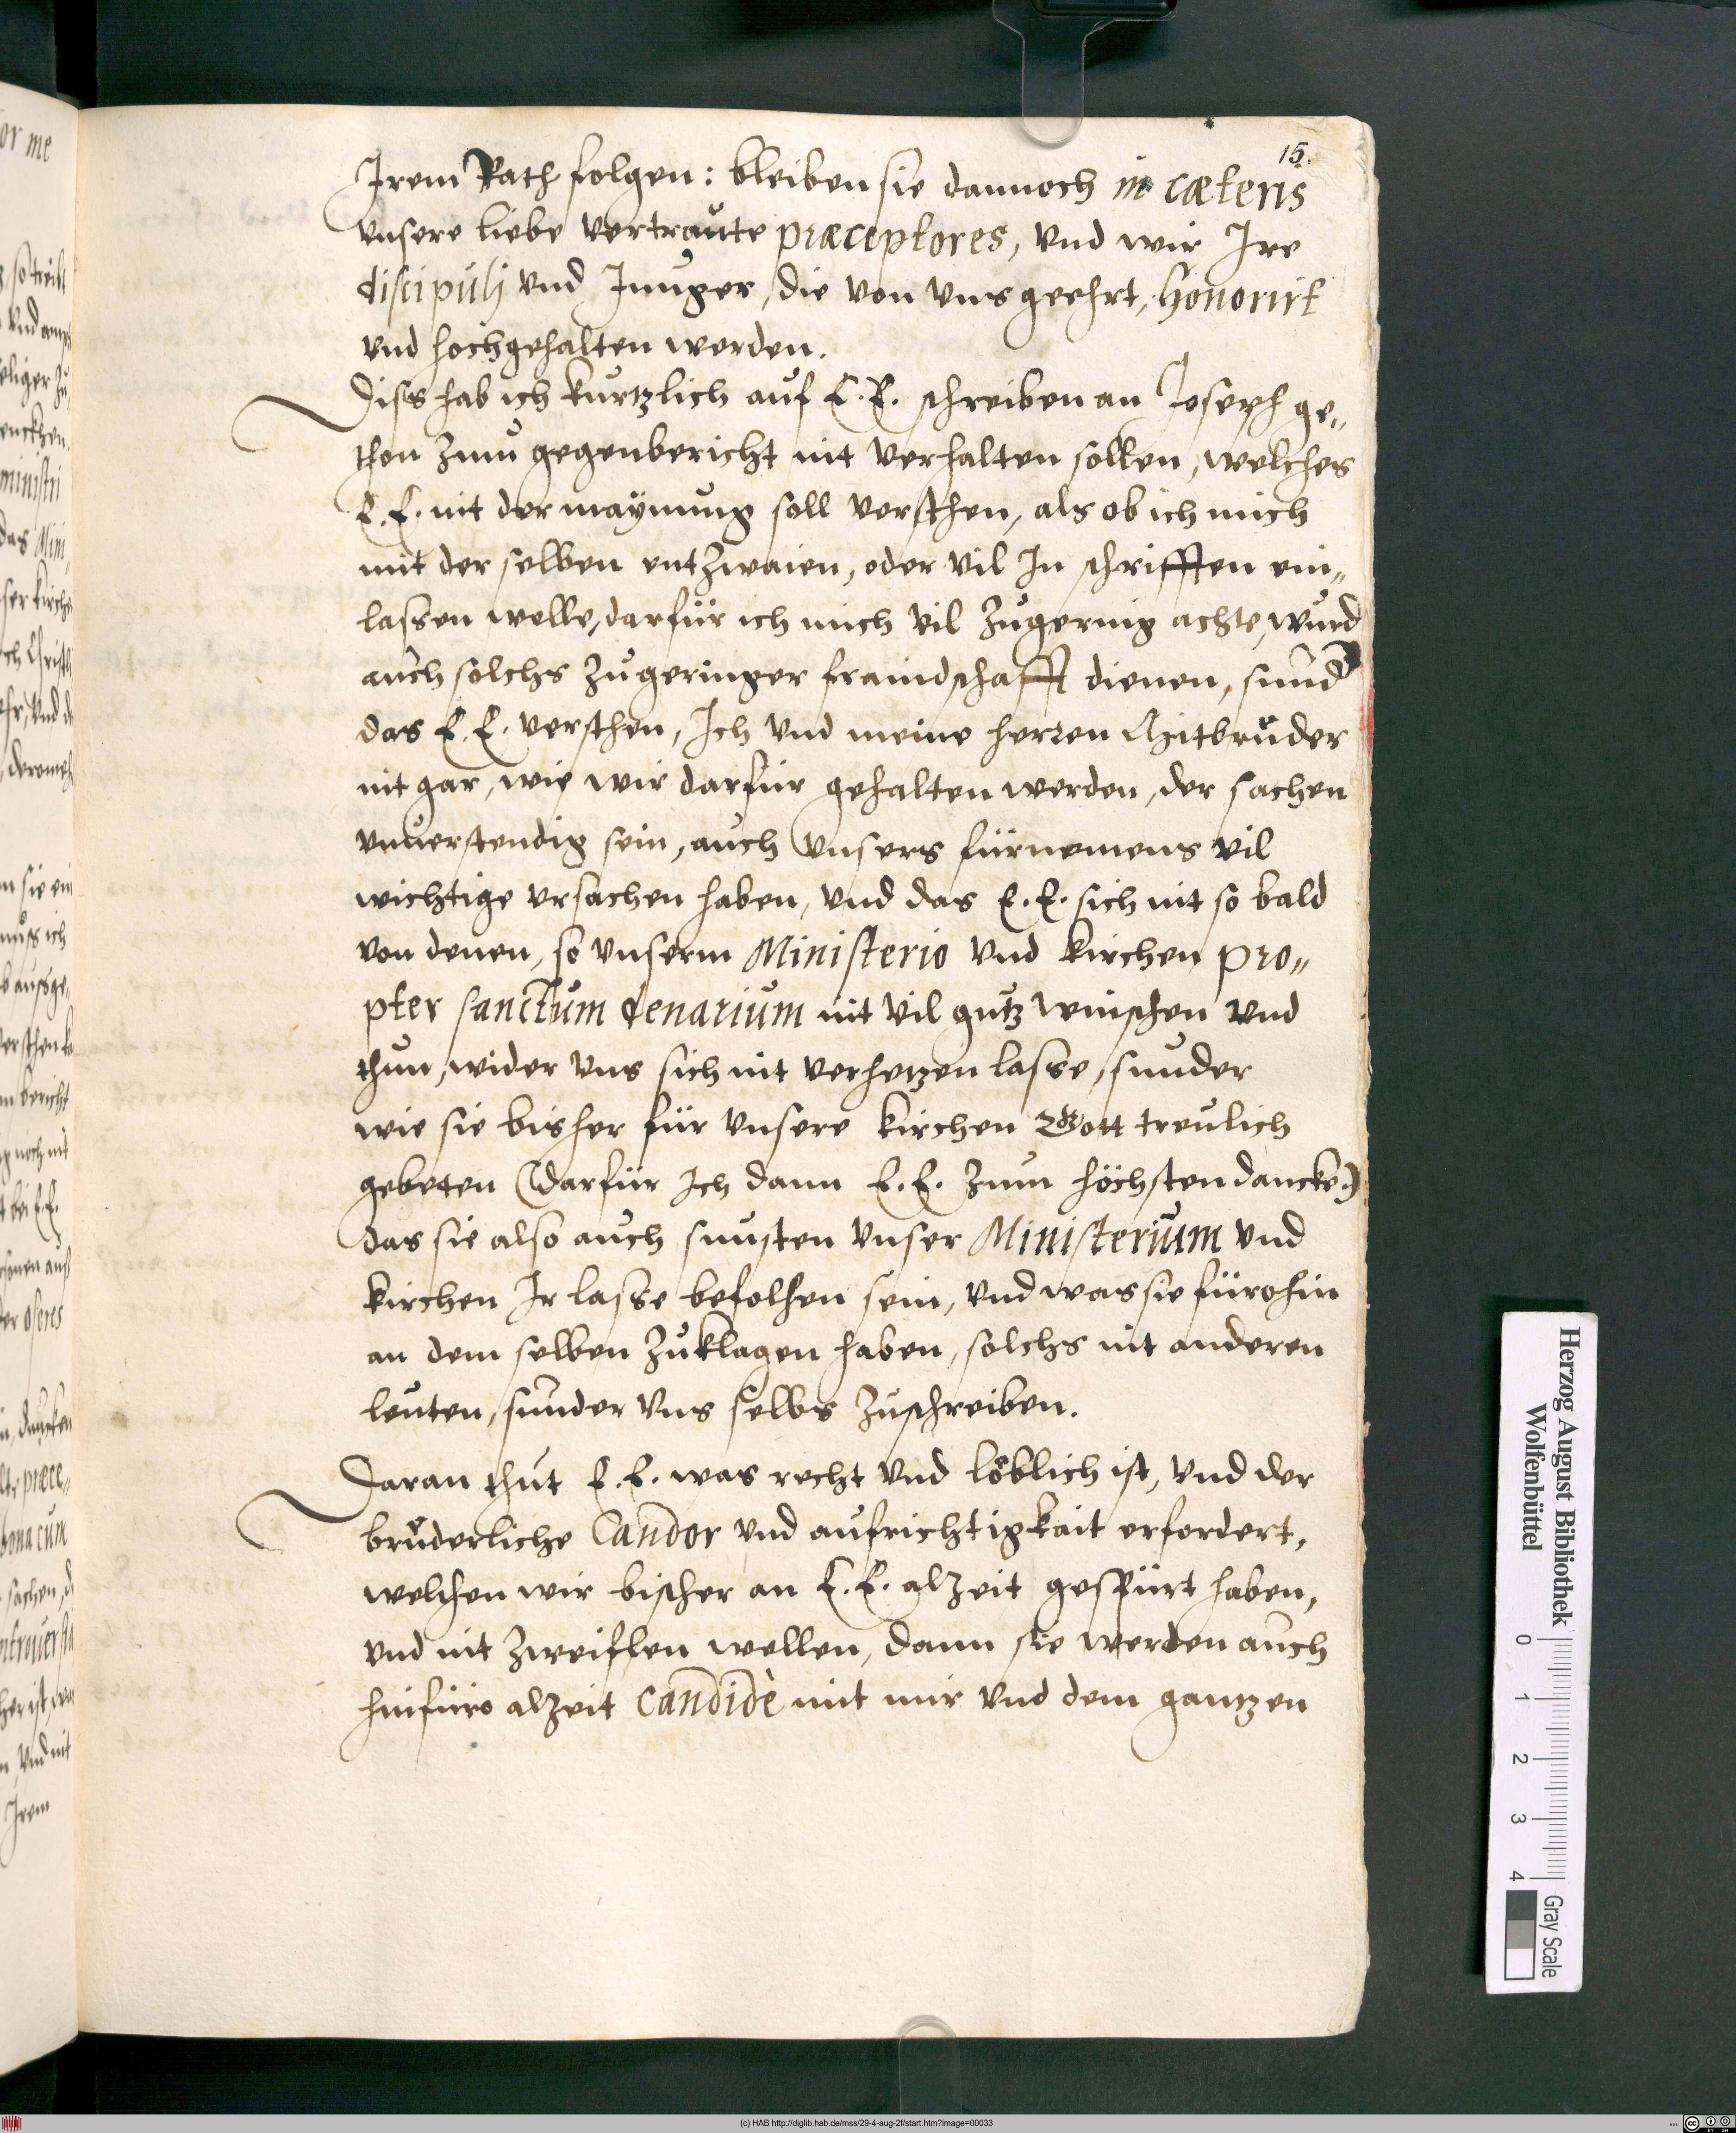 15.
Irem Rath folgen: bleiben sie dannoch in cæteris
vnsere liebe vertraute præceptores, vnd wir Ire
discipulj vnd Iunger, die von vns geehrt, honorirt
vnd hochgehalten werden.
Diss hab ich kurtzlich auf E. E. schreiben an Joseph ge„
thon zum gegenbericht nit verhalten sollen, welches
E. E. nit der maynung soll versthen, als ob ich mich
mit der selben entzwaien, oder vil In schrifften ein„
lassen welle, darfür ich mich vil zugering achte, wurd
auch solchs zu geringer fraindschafft dienen, sund
das E. E. versthen, Ich vnd meine herren Mitbruder
nit gar, wie wir darfür gehalten werden, der sachen
vnuerstendig sein, auch vnsers fürnemens vil
wichtige vrsachen haben, vnd das E. E. sich nit so bald
von denen, so vnserm Ministerio vnd kirchen pro„
pter sanctum denarium nit vil gutz winschen vnd
thun, wider vns sich nit verhetzen lasse, sunder
wie sie bisher für vnsere kirchen Gott treulich
gebeten (darfür Ich dann E. E. zum höchsten dancke:)
das sie also auch sunsten vnser Ministerium vnd
kirchen Ir lasse befolhen sein, vnd was sie fürohin
an dem selben zuklagen haben, solchs nit anderen
leuten, sunder vns selbs zuschreiben.
Daran thut E. E. was recht vnd löblich ist, vnd der
bruderliche Candor vnd aufrichtigkait erfordert,
welchen wir bischer an E. E. alzeit gespürt haben,
vnd nit zweiflen wellen, dann sie werden auch
hinfüro alzeit candidè mit mir vnd dem gantzen
Herzog August Bibliothek
Wolfenbüttel
0 1 2 3 4
Gray Scale
(c) HAB http://diglib.hab.de/mss/29-4-aug-2f/start.htm?image=00033